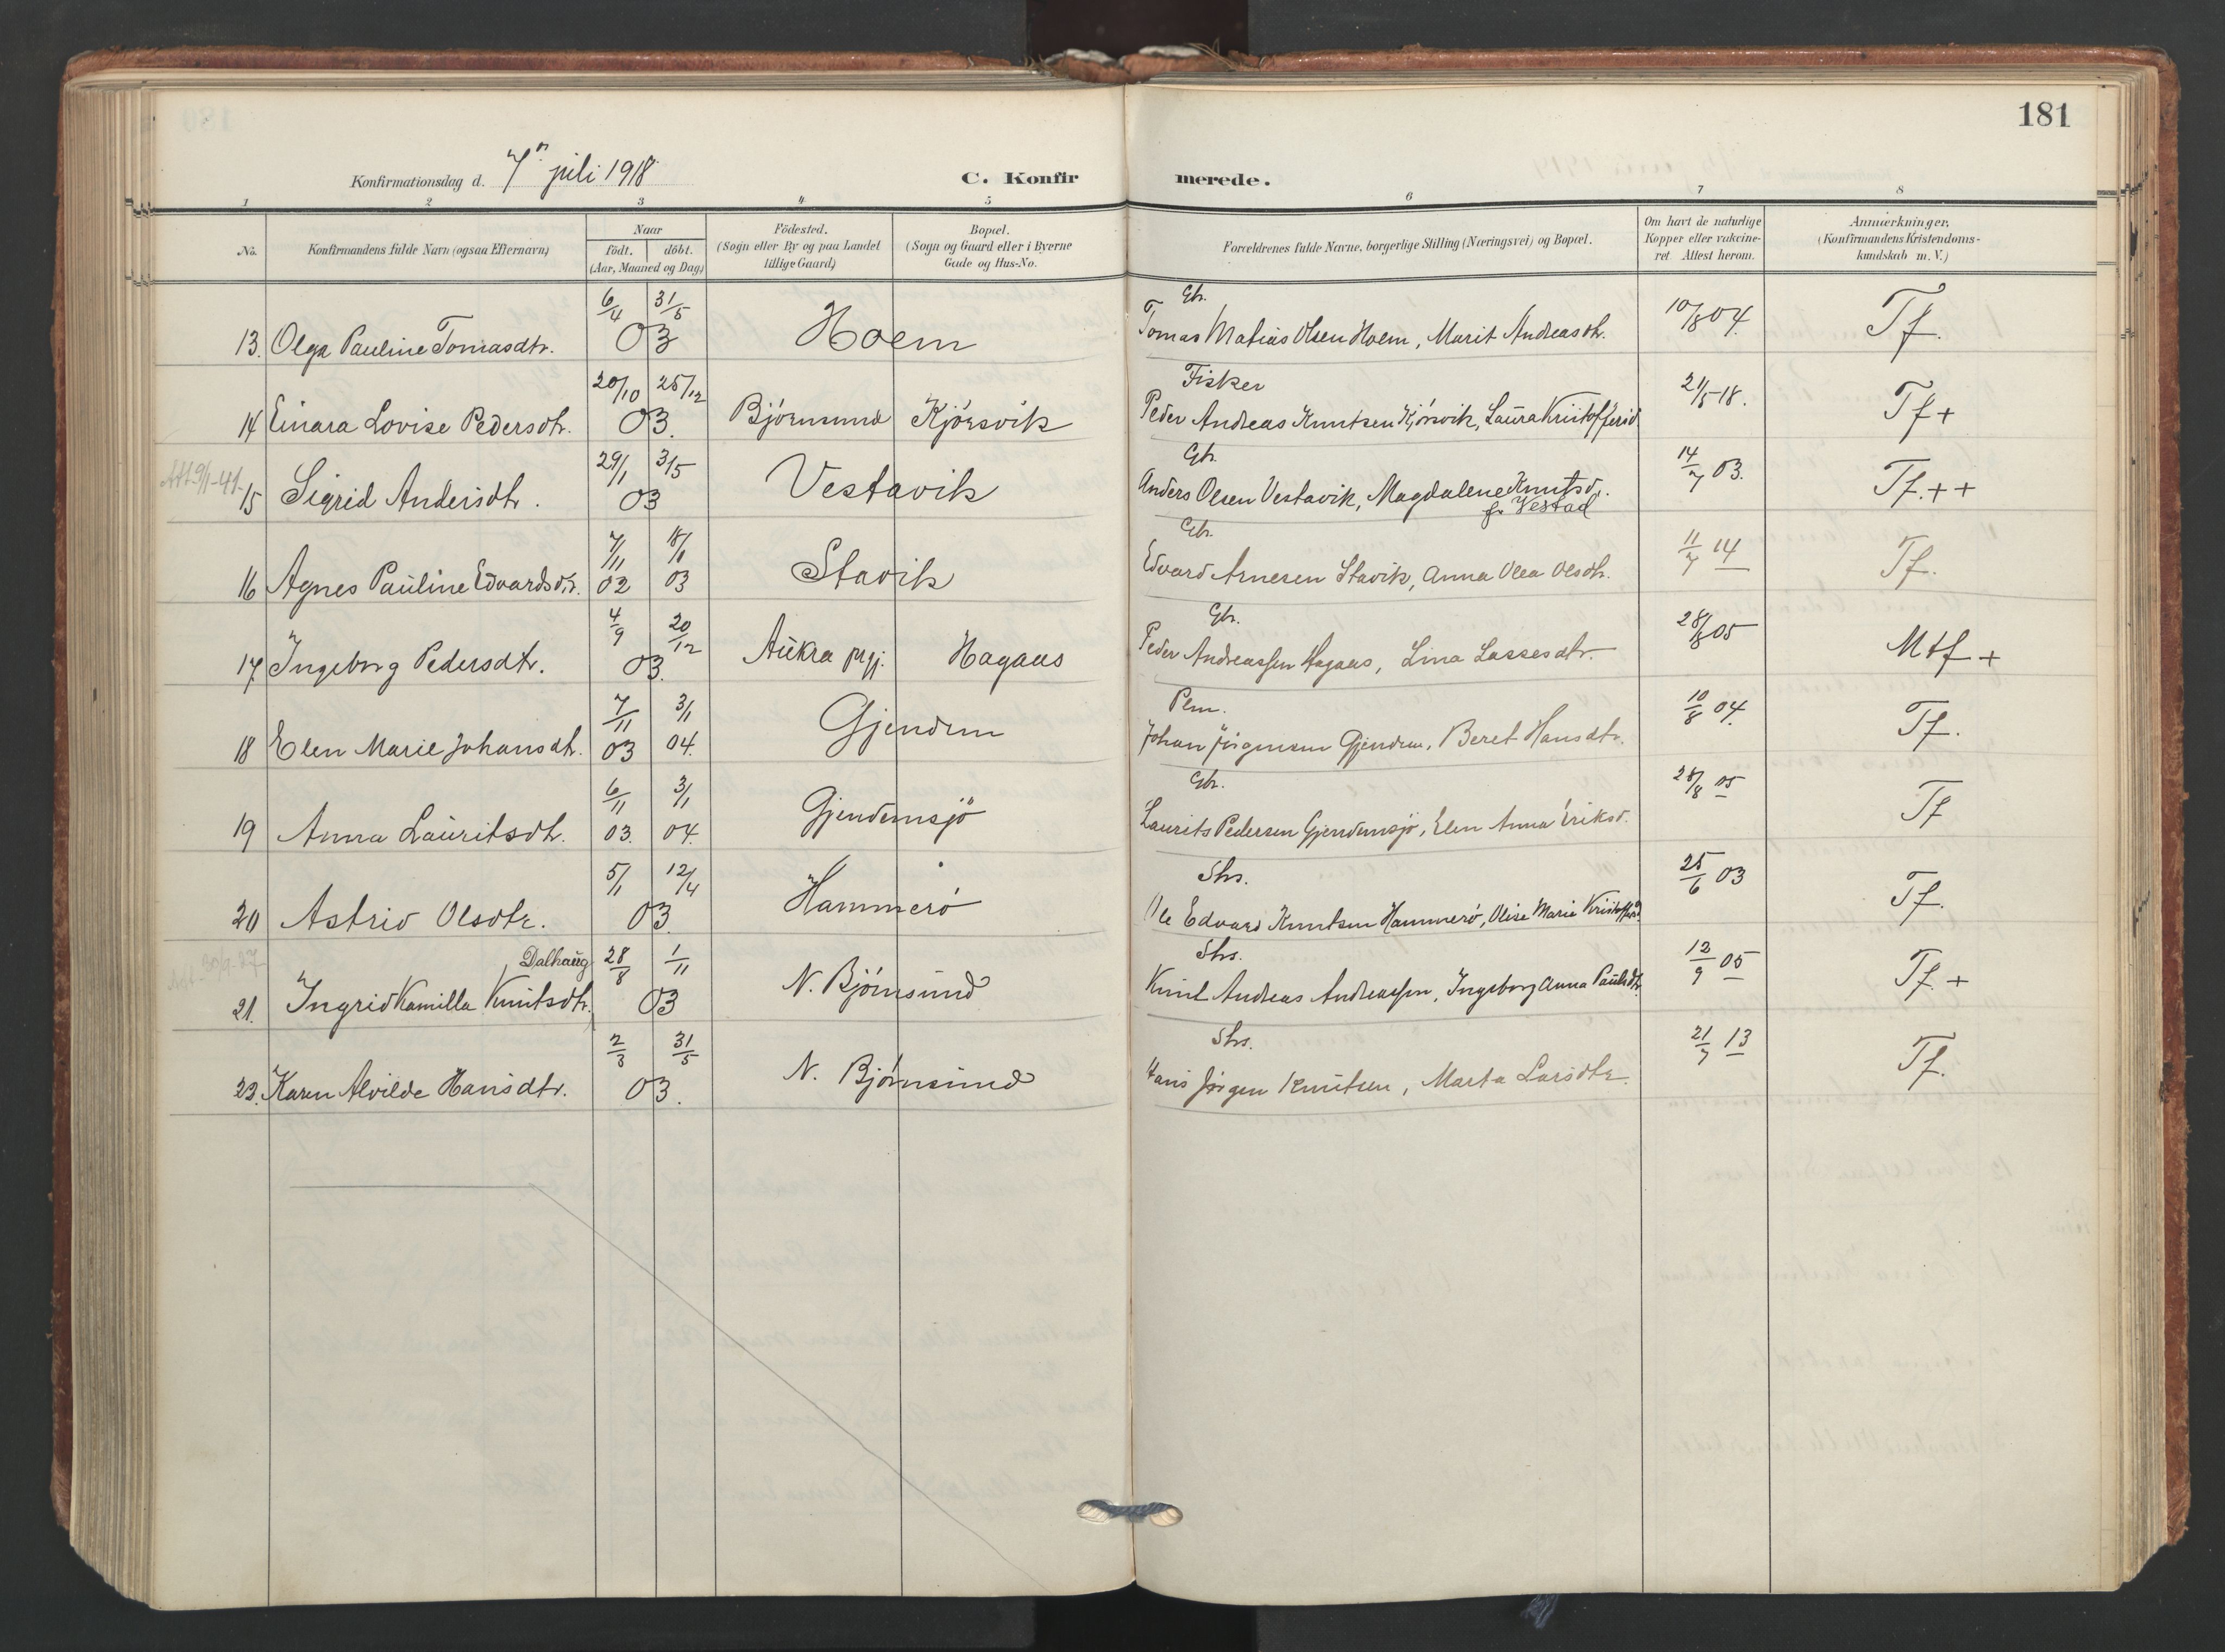 181
Konfirmationsdag d. 7de juli 1918
C. Konfirmerede.
1 2 3 4 5 6 7 8
No. Konfirmandens fulde Navn (ogsaa Efternavn) Naar födt. döbt. (Aar, Maaned og Dag) Födested. (Sogn eller By og paa Landet tillige Gaard) Bopæl. (Sogn og Gaard eller i Byerne Gade og Hus-No. Forældrenes fulde Navne, borgerlige Stilling (Næringsvei) og Bopæl. Om havt de naturlige Kopper eller vakcineret Attest herom. Anmærkninger, (Konfirmandens Kristendomskundskab m. V.)
13. Olga Pauline Tomasdtr. 6/4 31/5 03 Hoem Gbr. Tomas Matias Olsen Hoem, Marit Andreasdtr. 10/8 04. Tf.
14 Einara Lovise Pedersdtr. 20/10 25/12 03. Björnsund Kjörsvik Fisker Peder Andreas Knutsen Kjörsvik, Laura Kristoffersd. 21/5-18. Tf+
15 Sigrid Andersdtr. 29/1 3/5 03 Vestavik Gbr. Anders Olsen Vestavik, Magdalene Knutsd. f. Vestad 14/7 03. Tf.++
16 Agnes Pauline Edvardsdtr. 7/11 02 18/1 03 Stavik Gbr. Edvard Arnesen Stavik, Anna Olea Olsdtr. 11/7 14 Tf.
17 Ingeborg Pedersdtr. 4/9 20/12 03. Aukra prgj. Hagaas Gbr. Peder Andreassen Hagaas, Lina Lassesdtr. 28/8 05 Mtf+
18 Elen Marie Johansdtr. 7/11 03 3/1 04. Gjendem Plm. Johan Jörgensen Gjendem, Beret Hansdtr. 10/8 04. Tf.
19 Anna Lauritsdtr. 6/11 03. 3/1 04. Gjendemsjö Gbr. Laurits Pedersen Gjendemsjö, Elen Anna Eriksd. 28/8 05 Tf
20 Astrid Olsdtr. 5/1 12/4 03. Hammerö Shs. Ole Edvard Knutsen Hammerö, Olise Marie Kristoffersd. 25/6 03 Tf.
21. Ingrid Kamilla Knutsdtr. Dalhaug 28/8 1/11 03 N. Björnsund Shs. Knut Andreas Andreassen, Ingeborg Anna Paulsdtr. 12/9 05 Tf.+
22. Karen Alvilde Hansdtr. 2/3 31/5 03. N. Björnsund Shs. Hans Jörgen Knutsen, Marta Larsdtr. 21/7 13 Tf.